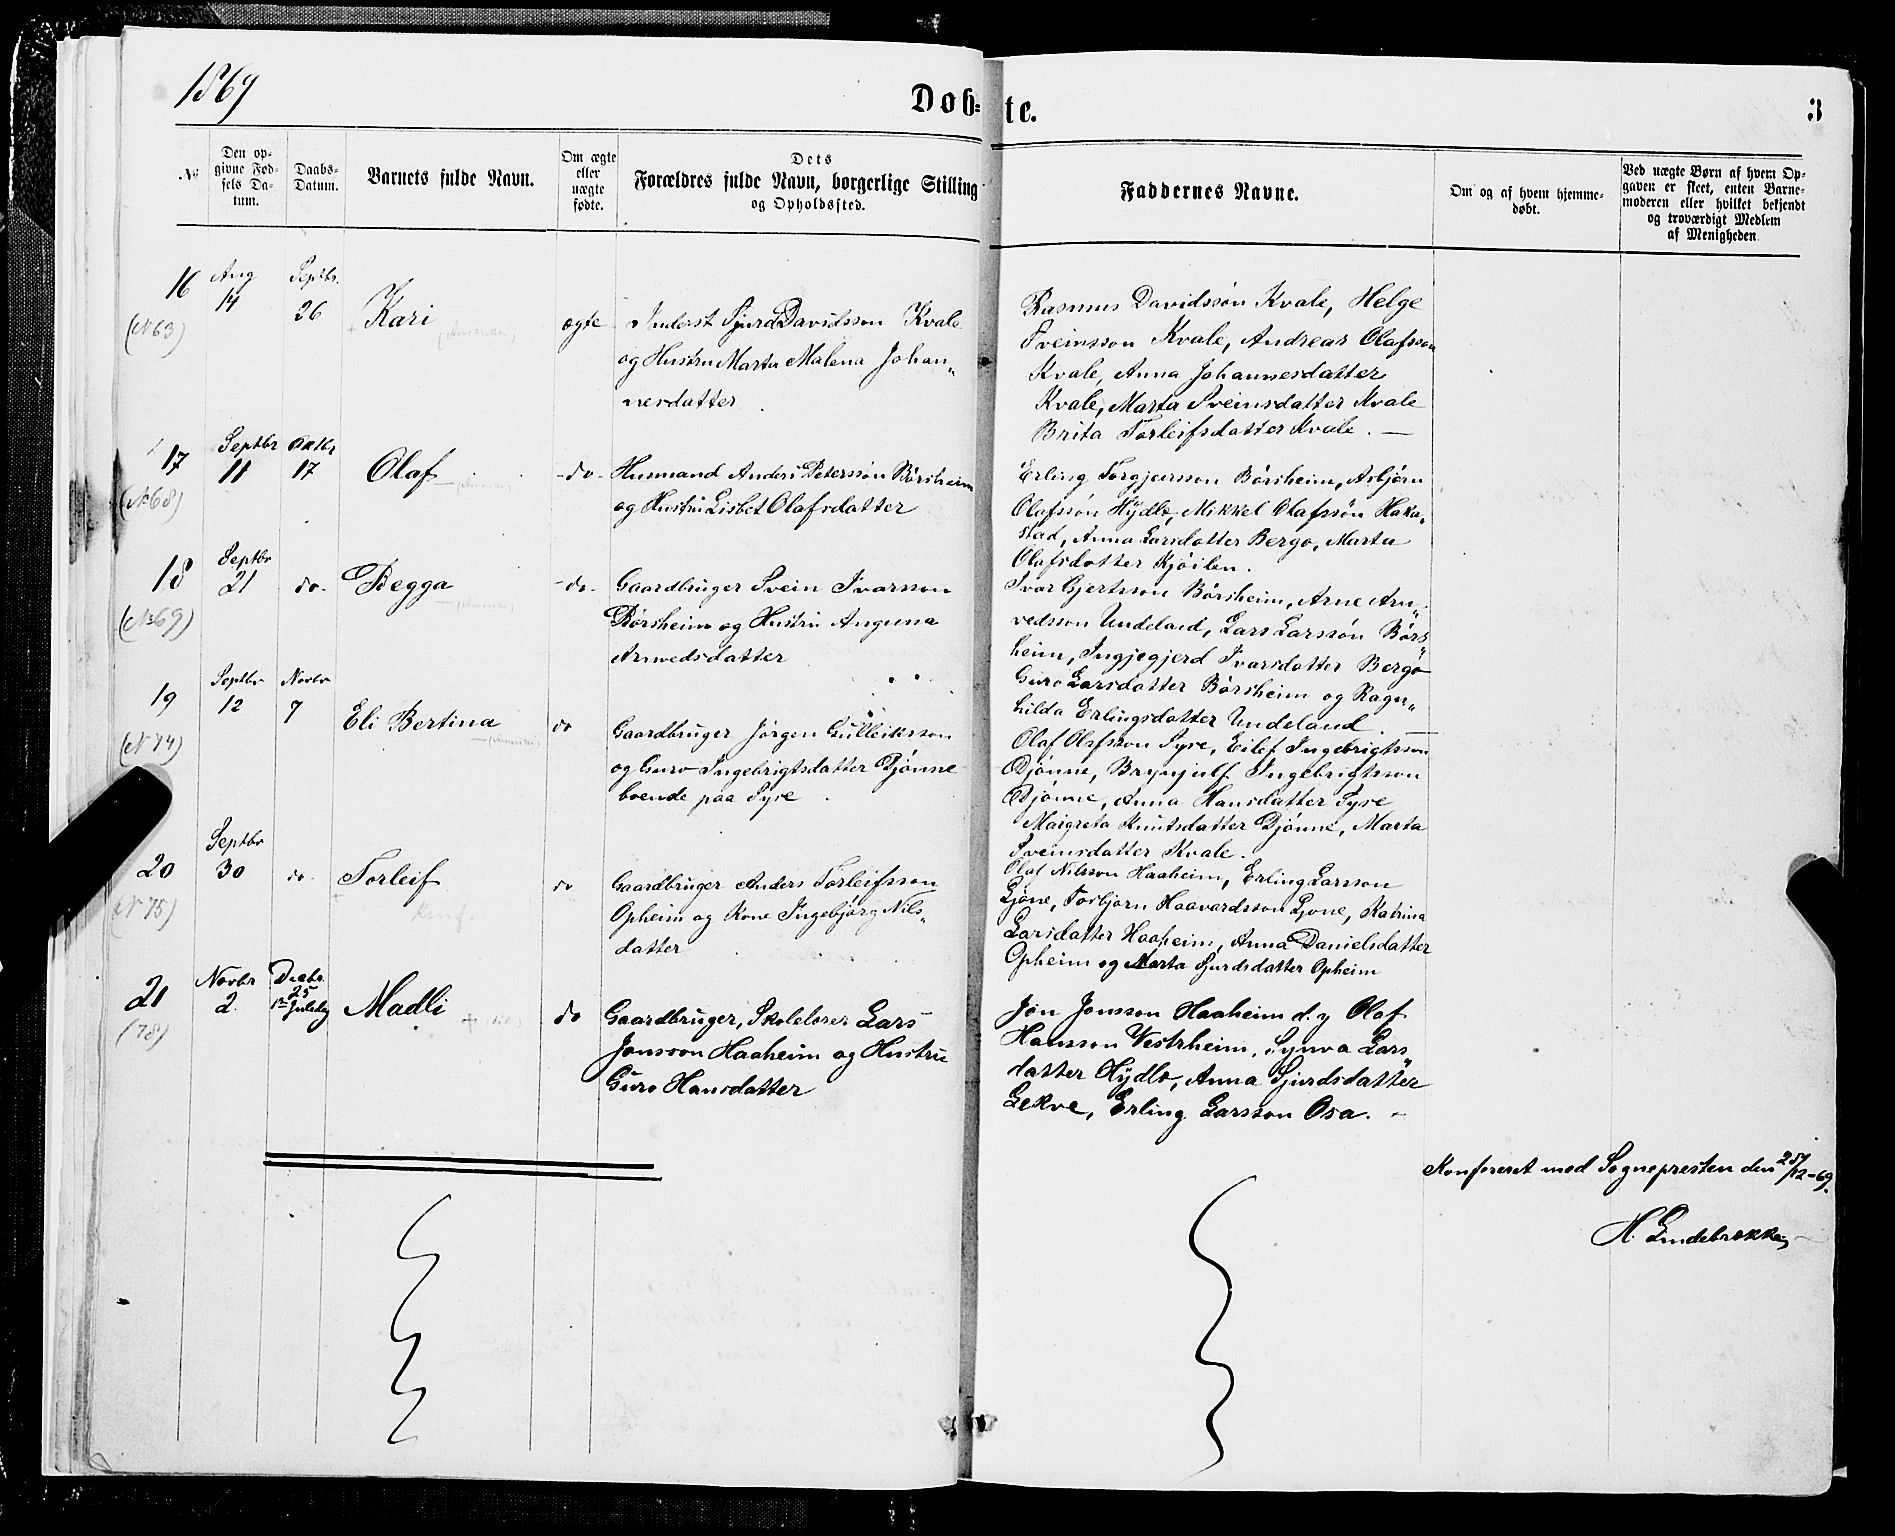 1869
Døb-
te.
3
No
Den op-
givne Fød-
sels Da-
tum.
Daabs-
Datum.
Barnets fulde Navn.
Om ægte
eller
uægte
fødte.
Dets
Forældres fulde Navn, borgerlige Stilling
og Opholdssted.
Faddernes Navne.
Om og af hvem hjemme-
døbt.
Ved uægte Børn af hvem Op-
gaven er skeet, enten Barne-
moderen eller hvilket bekjendt
og troværdigt Medlem
af Menigheden.
16
(No 63)
Aug
14
Septbr.
26
Kari
ægte
Inderst Sjurd Davidsson Kvale
og Hustru Marta Malena Johan„
nesdatter
Rasmus Davidssøn Kvale, Helge
Sveinsson Kvale, Andreas Olafsson
Kvale, Anna Johannesdatter
Kvale, Marta Sveinsdatter Kvale
Brita Torleifsdatter Kvale. —
17
(No 68)
Septbr
11
Oktbr
17
Olaf
-do-
Husmand Anders Peterssøn Børsheim
og Hustru Lisbet Olafsdatter
Erling Torgjersson Børsheim, Asbjørn
Olafssøn Hÿdle, Mikkel Olafssøn Haka„
stad, Anna Larsdatter Bergo, Marta
Olafsdatter Kjøilen.
18
(No 69)
Septbr
21
do-
Begga
-do-
Gaardbruger Svein Ivarsson
Børsheim og Hustru Anguna
Arnvedsdatter
Ivar Gjertsson Børsheim, Arne Arn„
vedsson Undeland, Lars Larssøn Børs„
heim, Ingjegjerd Ivarsdatter Bergo
Guro Larsdatter Børsheim og Ragn„
hilda Erlingsdatter Undeland.
19
(No 74)
Septbr
12
Novbr
7
Eli Bertina
do
Gaardbruger Jørgen Gulleiksson
og Guro Ingebrigtsdatter Djønne
boende paa Syse.
Olaf Olafsson Syse, Eilef Ingebrigtsson
Djønne, Brynjulf Ingebrigtsson
Djønne, Anna Hansdatter Syse
Maigreta Knutsdatter Djønne, Marta
Sveinsdatter Kvale.
20
(No 75)
Septbr
30
do-
Torleif
do
Gaardbruger Anders Torleifsson
Opheim og Kone Ingebjørg Nils„
datter
Olaf Nilsson Haaheim, Erling Larsson
Ljone, Torbjørn Haavardsson Ljone, Katrina
Larsdatter Haaheim, Anna Danielsdatter
Opheim og Marta Sjurdsdatter Opheim
21
(78)
Novbr
2.
Decbr.
25
1ste Juledag
Madli
do
Gaardbruger, Skolelærer Lars
Jonsson Haaheim og Hustru
Guro Hansdatter
Jon Jonsson Haaheim d. y Olaf
Hansson Vestrheim, Synva Lars„
datter Hÿdle, Anna Sjurdsdatter
Lekve, Erling Larsson Osa. -
Konfereret med Sognepresten den 28/12-69.
H. Lindebrekke